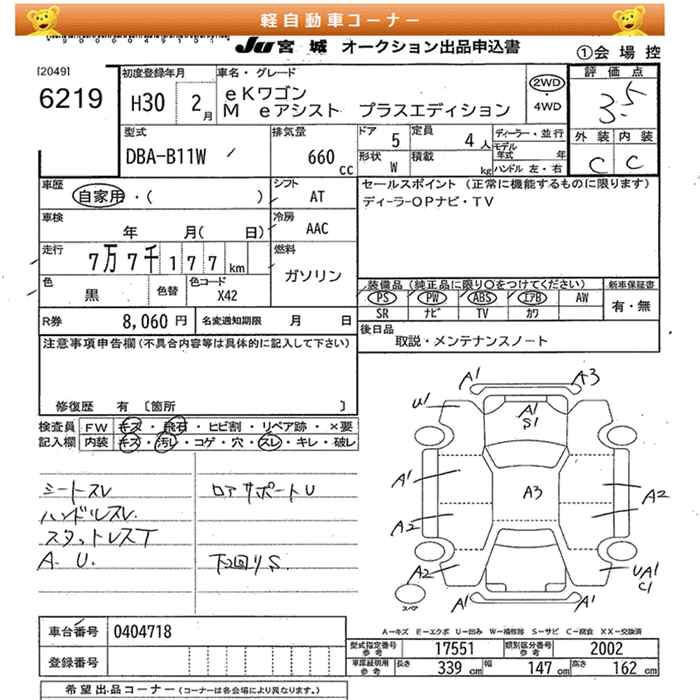 軽自動車コーナー
JU 宮城 オークション出品申込書
①会場控
[2049]
6219
初度登録年月
H30 2月
車名・グレード
eKワゴン
M eアシスト プラスエディション
2WD
・
4WD
評価点
3.5
外装 内装
C C
型式
DBA-B11W
排気量
660 cc
ドア 5
定員 4人
形状 W
積載 kg
ディーラー・並行
モデル年式 年
ハンドル 左・右
車歴
自家用・( )
シフト AT
セールスポイント (正常に機能するものに限ります)
ディーラーOPナビ・TV
車検
年 月( 日)
冷房 AAC
走行
7万7千177km
燃料
ガソリン
色
黒
色替
色コード
X42
装備品(純正品に限り○をつけてください)
新車保証書
PS PW ABS エアB AW
有・無
SR ナビ TV カワ
R券 8,060円
名変通知期限 月 日
後日品
取説・メンテナンスノート
注意事項申告欄(不具合内容等は具体的に記入して下さい)
修復歴 有 〔箇所 〕
検査員記入欄
FW キズ・飛石・ヒビ割・リペア跡・×要
内装 キズ・汚レ・コゲ・穴・スレ・キレ・破レ
シートスレ
ハンドルスレ
スタットレスT
A. U.
ロアサポートU
下回りS
A1
A3
U1
A1
S1
A1
A3
A2
A2
A2
UA1
C1
A1
A1
スペア
A-キズ E-エクボ U-凹み W-補修跡 S-サビ C-腐食 XX-交換済
車台番号 0404718
登録番号
型式指定番号 参考 17551
類別区分番号 参考 2002
車庫証明用 参考 長さ 339 cm 幅 147 cm 高さ 162 cm
希望出品コーナー(コーナーは各会場により異なります。)